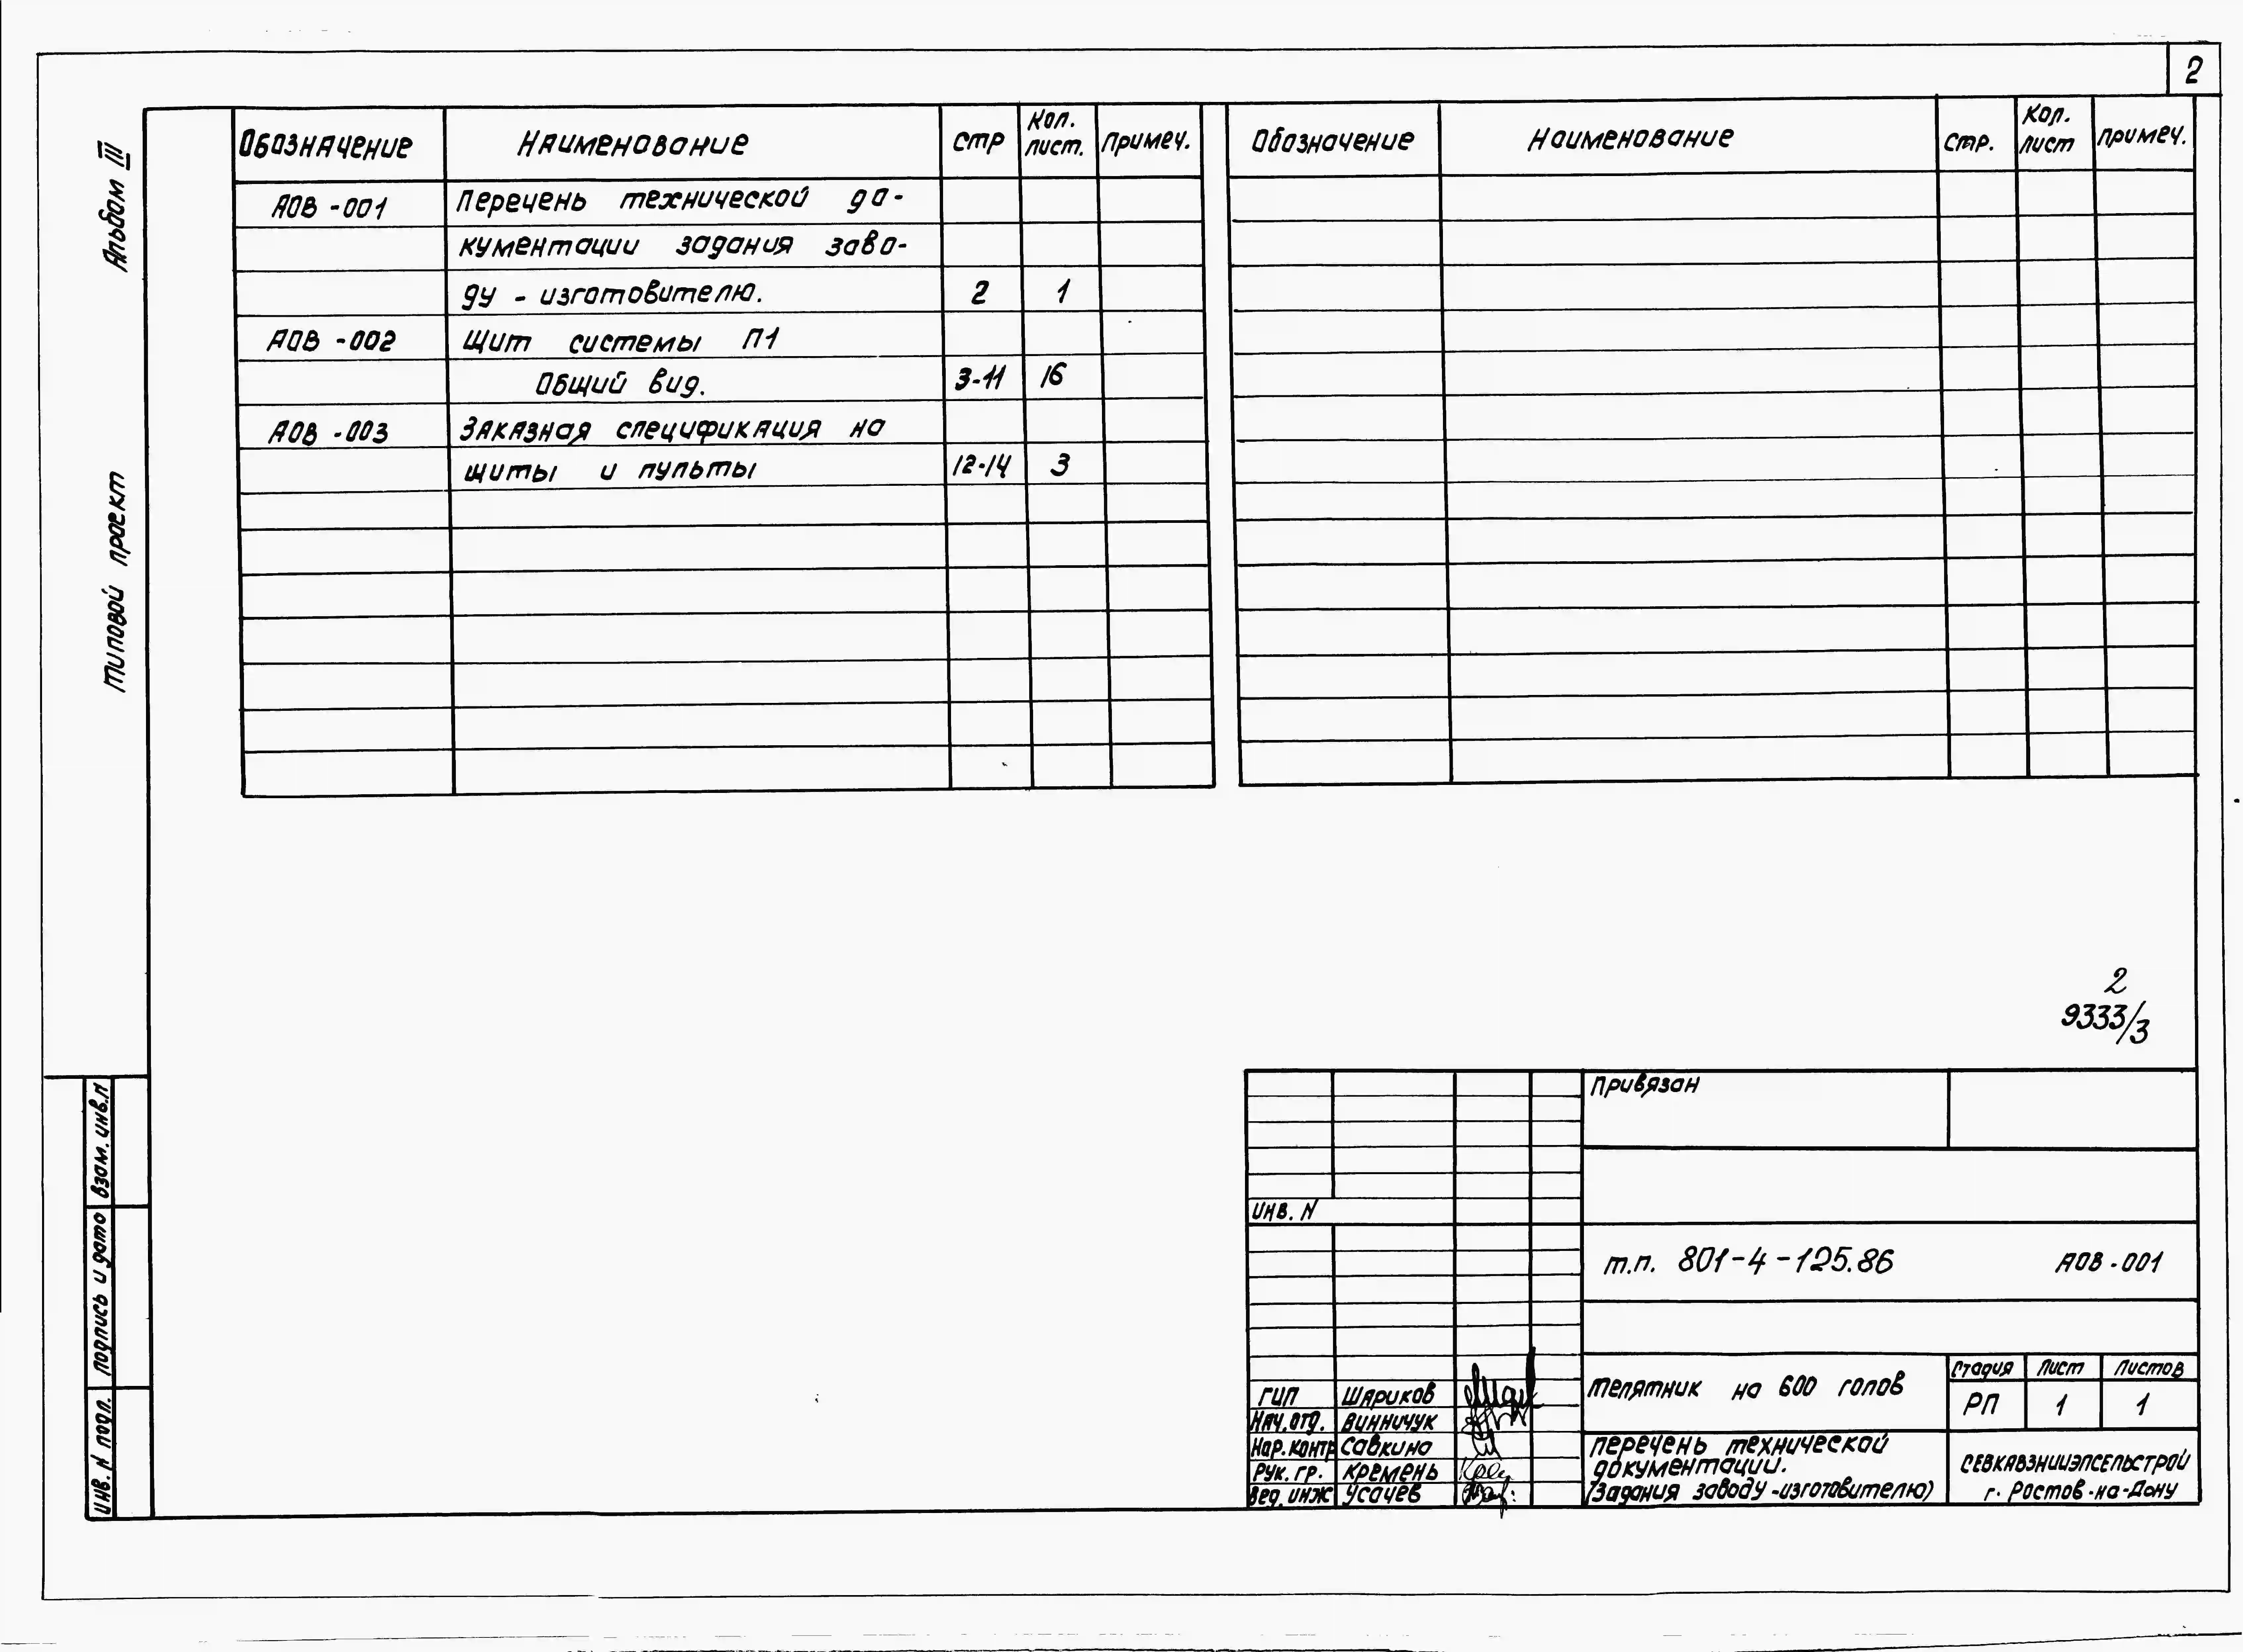 2
Альбом III
Типовой проект
Обозначение Наименование Стр Кол. лист. Примеч.
Обозначение Наименование Стр. Кол. лист Примеч.
АОВ-001 Перечень технической до-
кументации задания заво-
ду - изготовителю. 2 1
АОВ-002 Щит системы П1
Общий вид. 3-11 16
АОВ-003 Заказная спецификация на
щиты и пульты 12-14 3
2
9333/3
Привязан
Инв. N
т.п. 801-4-125.86 АОВ-001
Телятник на 600 голов
Стадия Лист Листов
РП 1 1
ГИП Шариков
Нач. отд. Винничук
Нор. контр Савкина
Рук. гр. Кремень
Вед. инж Усачев
Перечень технической
документации.
(Задания заводу-изготовителю)
СЕВКАВЗНИИЭПСЕЛЬСТРОЙ
г. Ростов-на-Дону
Взам. инв. N
Подпись и дата
Инв. N подл.